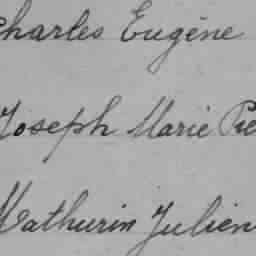 Charles Eugène
Joseph Marie Pie
Mathurin Julien